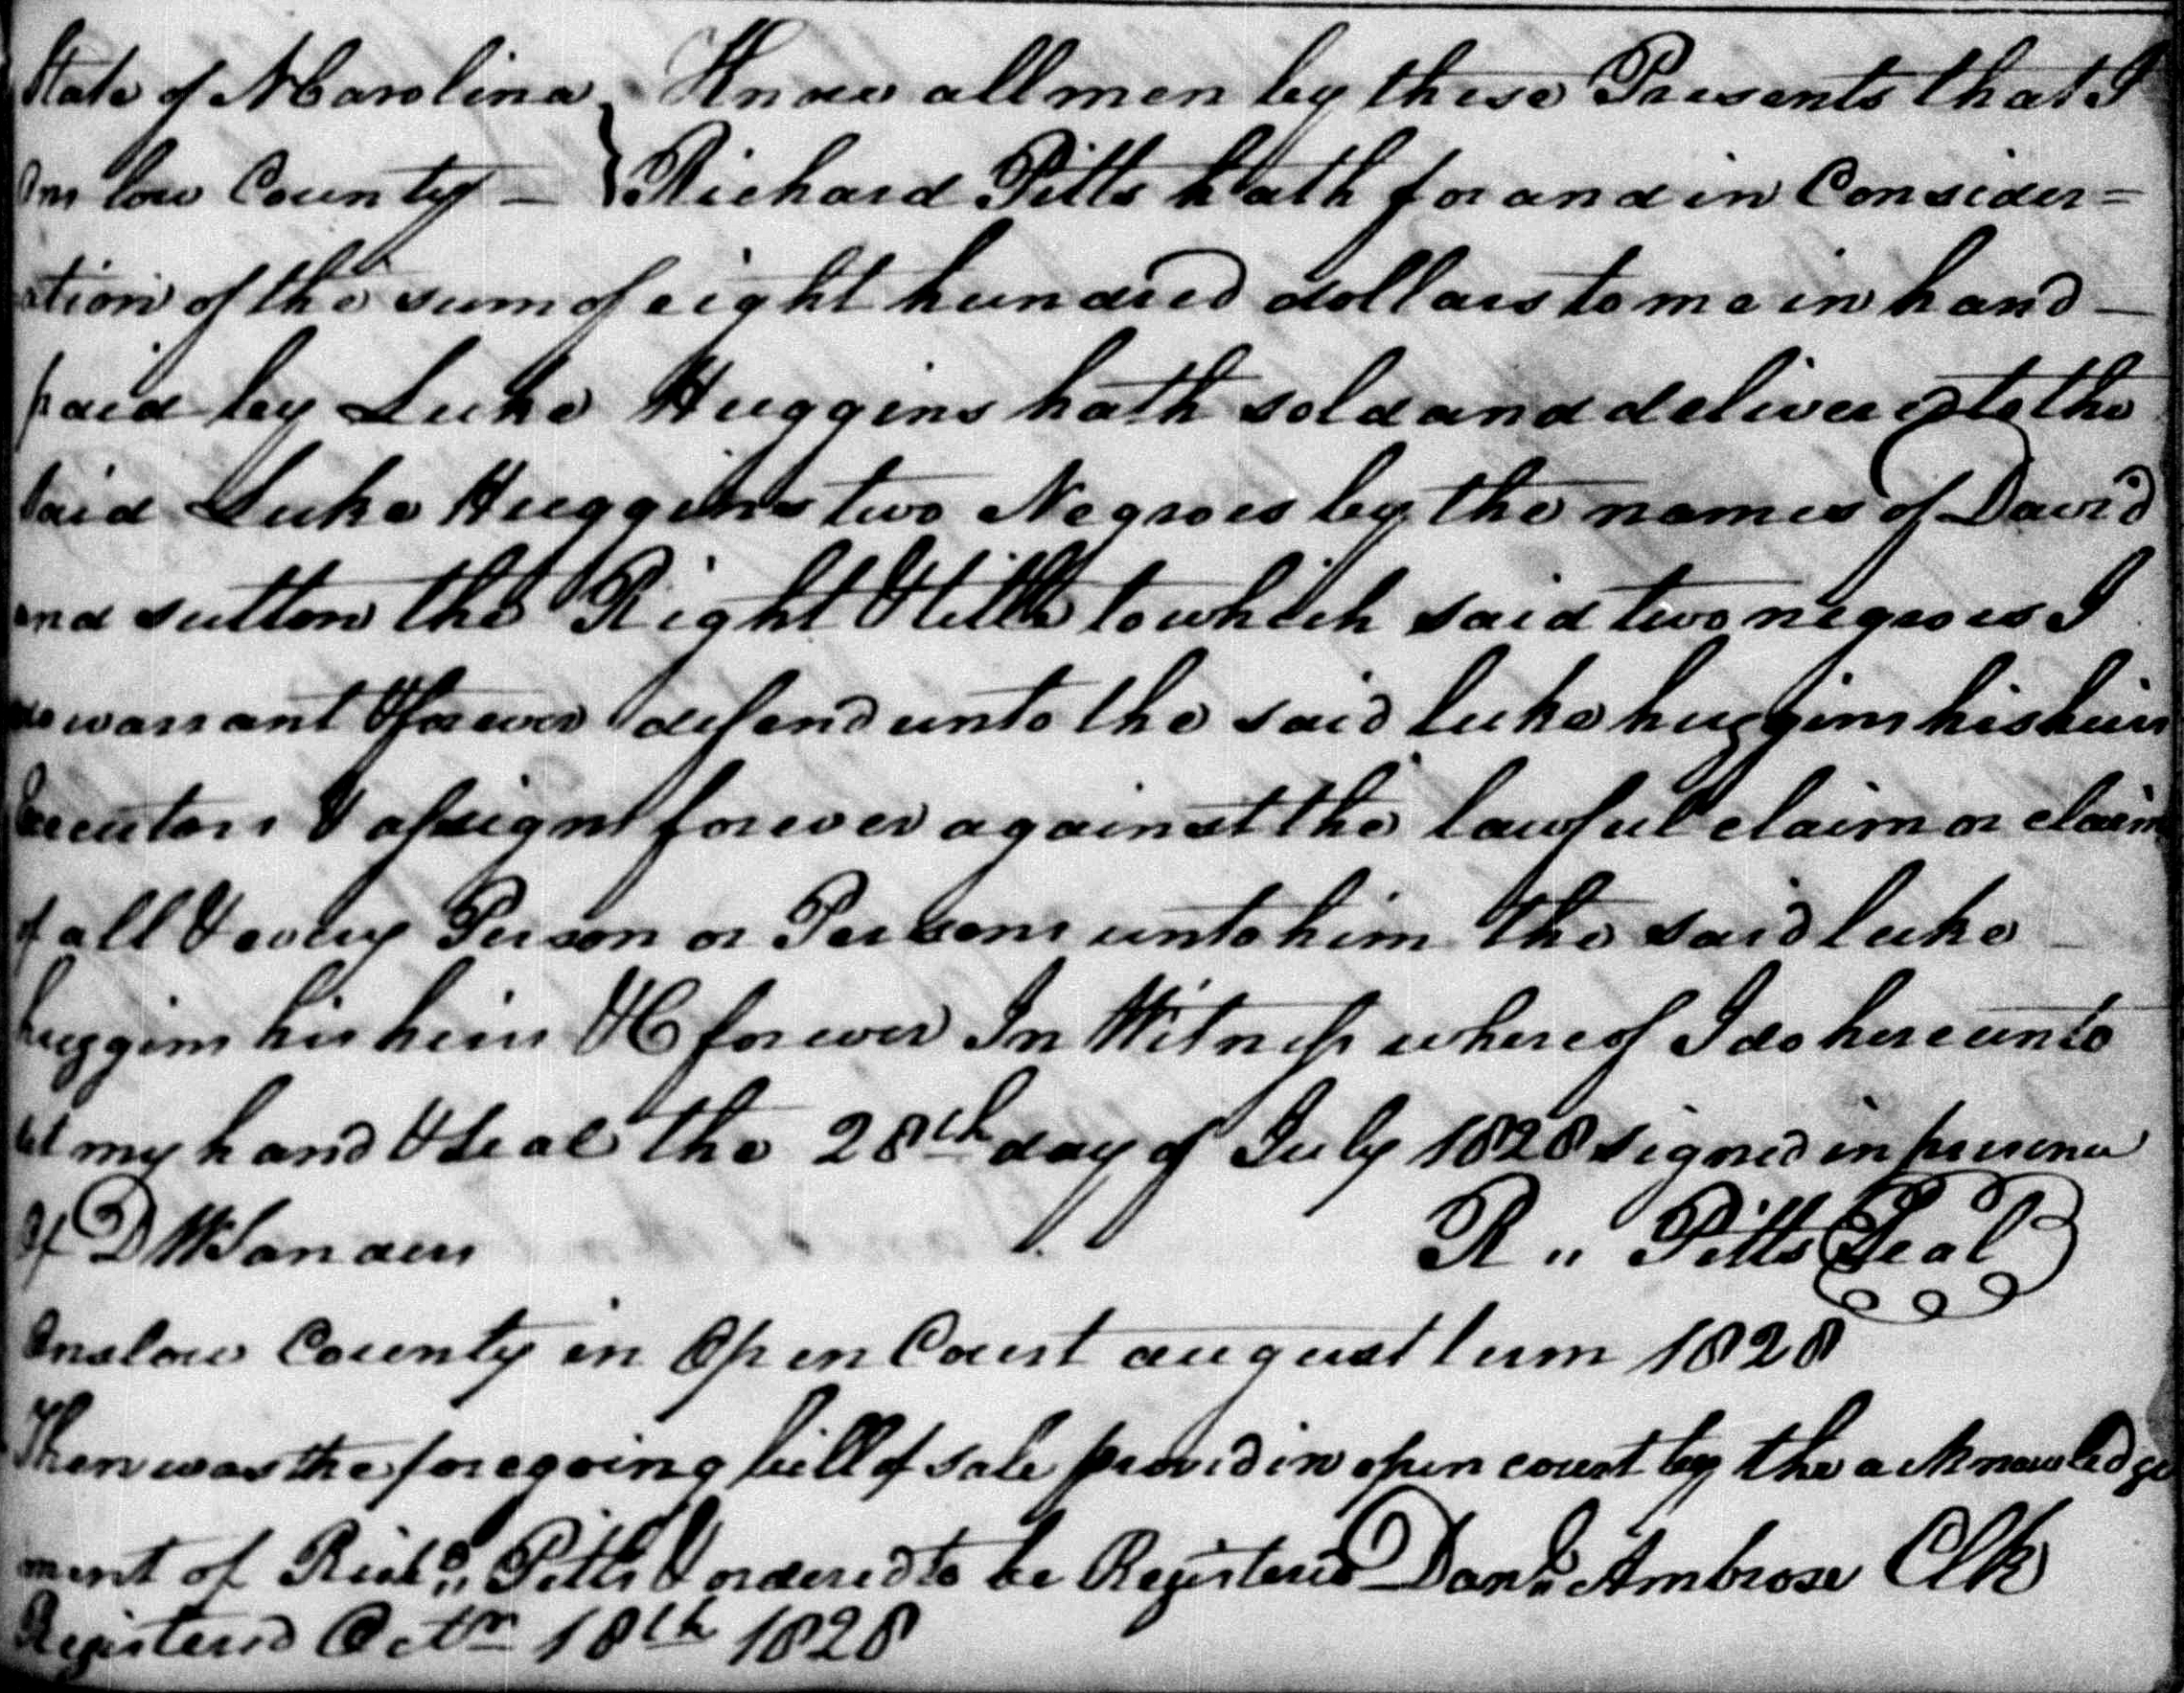 State of N Carolina } Know all men by these Presents that I
Onslow County — } Richard Pitts hath for and in Consider=
ation of the sum of eight hundred dollars to me in hand —
paid by Luke Huggins hath sold and delivered to the
Said Luke Huggins two Negroes by the names of David
and sutton the Right & title to which said two negroes I
do warrant & forever defend unto the said luke huggins his heirs
Executors & assigns forever against the lawful claim or claims
of all & every Person or Persons unto him the said luke —
huggins his heirs &C forever In Witness whereof I do hereunto
set my hand & Seal the 28th day of July 1828 signed in presence
of D W Sanders R" Pitts Seal
Onslow County in Open Court august term 1828
Then was the foregoing bill of sale proved in open court by the acknowledge
ment of Richd" Pitts & ordered to be Registered Danl" Ambrose Clk
Registered Octr 18th 1828